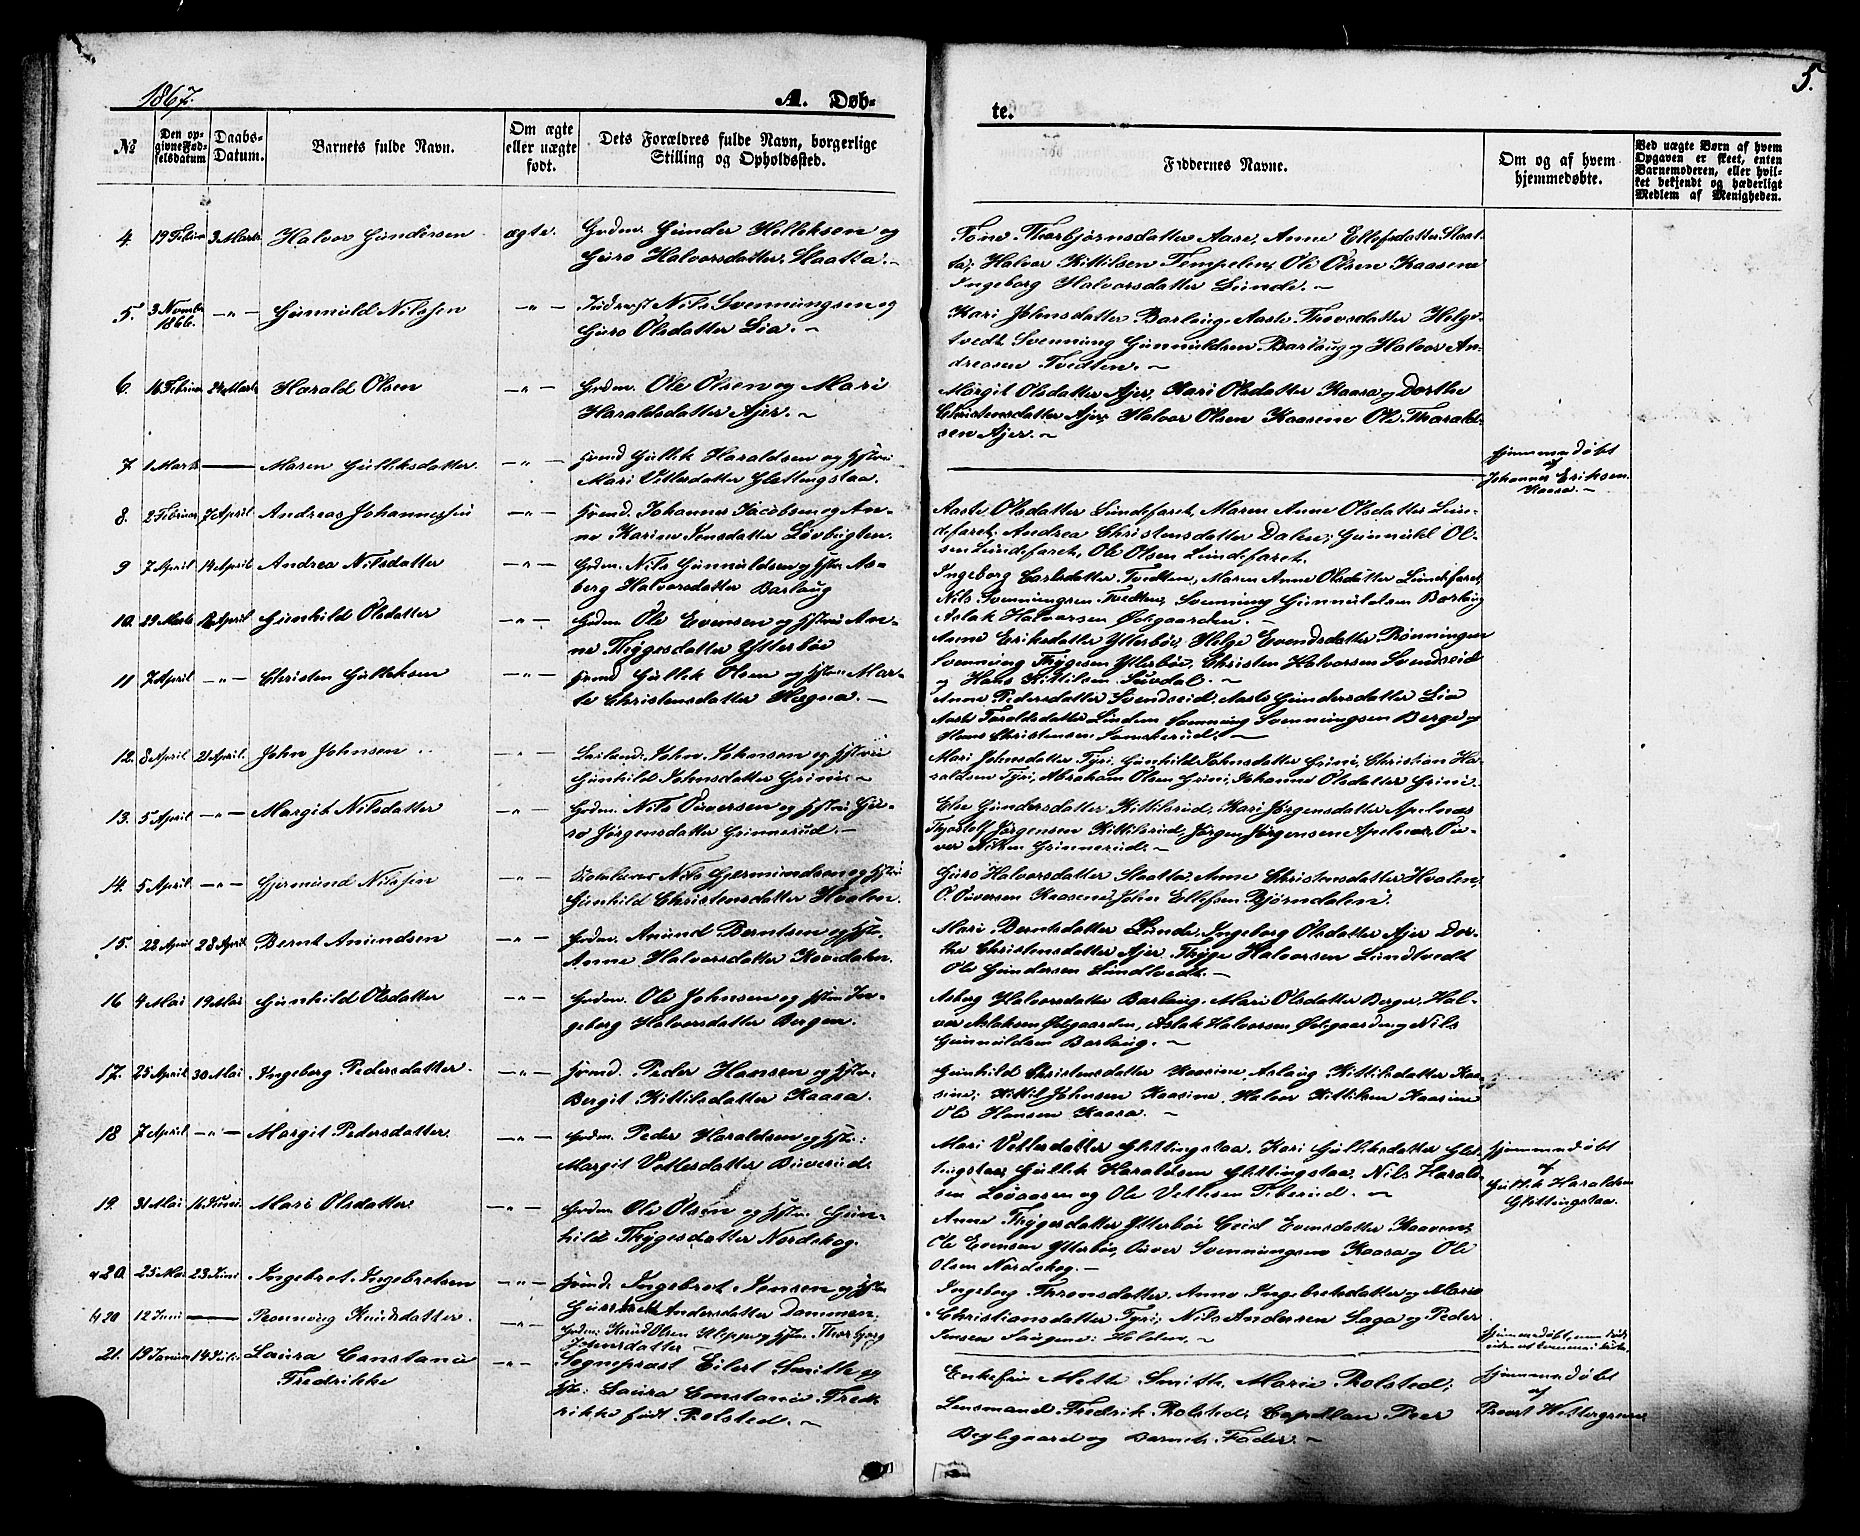 1867.
A. Døb-
te.
5.
№
Den op-
givne Fød-
selsdatum
Daabs-
Datum.
Barnets fulde Navn.
Om ægte
eller uægte
født.
Dets Forældres fulde Navn, borgerlige
Stilling og Opholdssted.
Faddernes Navne.
Om og af hvem
hjemmedøbte.
Ved uægte Børn af hvem
Opgaven er skeet, enten
Barnemoderen, eller hvil-
ket bekjendt og hæderligt
Medlem af Menigheden.
4. 19 Februar 3 Marts Halvor Gundersen ægte. Grdm. Gunder Kittilsen og
Guro Halvorsdatter Slaatta.
Tone Thorbjørnsdatter Aase, Anne Ellefsdatter Slaat-
ta; Halvor Kittilsen Tempelen, Ole Olsen Kaasene
Ingeborg Halvorsdatter Lunde.
5. 3 Novembr 1866. — " — Gunnuld Nilsen — " — Nils Svenningsen og
Guro Olsdatter Lia.
Kari Johnsdatter Barlaug, Aaste Thovsdatter Helge-
tvedt. Svenning Gunnuldsen Barlaug og Halvor An-
dreasen Tvedten.
6. 16 Februar 24 Marts Harald Olsen — " — Grdm. Ole Olsen og Mari
Haraldsdatter Ajer.
Margit Olsdatter Ajer, Kari Olsdatter Kaasa og Dorthe
Christensdatter Ajer, Halvor Olsen Kaasene Ole Harald-
sen Ajer.
7. 1 Marts — Maren Gulliksdatter. — " — Gullik Haraldsen og Hstru
Mari Vetlesdatter Glettingstaa.
hjemmedøbt
af
Johannes Eriksen
Kaasa.
8. 2 Februar 7 April Andreas Johannessen — " — Johannes Jacobsen og An-
ne Karine Jensdatter Løvbugten.
Aaste Olsdatter Lundefaret, Maren Anne Olsdatter Lun-
defaret, Andrea Christensdatter Dalen, Gunnuld Ol-
sen Lundefaret, Ole Olsen Lundefaret.
9 7 April 14 April Andrea Nilsdatter — " — Grdm. Nils Gunnuldsen og Hstru As-
berg Halvorsdatter Barlaug
Ingeborg Carlsdatter Tvedten, Maren Anne Olsdatter Lundefaret,
Nils Svenningsen Tvedten, Svenning Gunnuldsen Barlaug
Aslak Halvorsen Ødegaarden.
10. 29 Marts April Gunhild Olsdatter — " — Grdm. Ole Evensen og Hstru An-
ne Thygesdatter Ytterbøe
Anne Eriksdatter Ytterbøe, Helge Evendsdatter Rønningen
Svenning Thygesen Ytterbøe, Christen Halvorsen Svendseid
og Hans Kittilsen Suvdal.
11 7 April — " — Christen Gulliksen — " — Gullik Olsen og Hstru Mar-
te Christensdatter Hagna.
Anne Pedersdatter Svendseid, Aaste Gundersdatter Lia
Aaste Taraldsdatter Linden Svenning Svenningsen Berge og
Hans Christensen
12. 8 April 21 April. John Johnsen — " — John Johnsen og Hstru
Gunhild Johnsdatter Grini.
Mari Johnsdatter Tyri, Gunhild Johnsdatter Grini, Christian Ha-
raldsen Tyri, Abraham Olsen Grini, Johanne Olsdatter Grini.
13. 5 April — " — Margit Nilsdatter — " — Grdm. Nils Øuversen og Hstru Gu-
ro Jørgensdatter Grinnerud.
Else Gundersdatter Kittilsrud, Kari Jørgensdatter Apelnæs
Thjostolf Jørgensen Kittilsrud, Jørgen Jørgensen Apelnæs, Øu-
ver Nilsen Grinnerud.
14. 5 April — " — Gjermund Nilssen — " — Nils Gjermundsen og Hstru
Gunhild Christensdatter Hvalen.
Guro Halvorsdatter Slaatta, Anne Christensdatter Hvalen,
O. Øuversen Kaasene, John Ellefsen Bjørndalen.
15. 22 April 28 April Bernt Amundsen — " — Grdm. Amund Berntsen og Hstr.
Anne Halvorsdatter Kovedalen.
Mari Berntsdatter Lunde, Ingeborg Olsdatter Ajer, Dor-
the Christensdatter Ajer, Thyge Halvorsen Lundtvedt
Ole Gundersen Lundtvedt.
16 4 Mai 19 Mai Gunhild Olsdatter — " — Grdm. Ole Johnsen og Hstru In-
geborg Halvorsdatter Bergen.
Asberg Halvorsdatter Barlaug, Mari Olsdatter Berger, Hal-
vor Aslaksen Ødegaarden, Aslak Halvorsen Ødegaarden og Nils
Gunnuldsen Barlaug.
17. 25 April 30 Mai Ingeborg Pedersdatter. — " — Peder Hansen og Hstru.
Bergit Kittilsdatter Kaasa.
Gunhild Christensdatter Kaasene, Aslaug Kittilsdatter Kaa-
sene; Kittil Johnsen Kaasene, Halvor Kittilsen Kaasene
Ole Hansen Kaasa.
18 7 April — " — Margit Pedersdatter — " — Grdm. Peder Haraldsen og Hstr:
Margit Vetlesdatter Buverud.
Mari Vetlesdatter Glettingstaa, Kari Gulliksdatter Glet-
tingstaa, Gullik Haraldsen Glettingstaa, Nils Harald-
sen Løvaasen og Ole Vetlesen Tiberud.
hjemmedøbt
af
Gullik Haraldsen
Glettingstaa.
19. 31 Mai 16 Juni. Mari Olsdatter — " — Grdm. Ole Olsen og Hstr. Gun-
hild Thygesdatter Nordskog.
Anne Thygesdatter Ytterbøe Evensdatter Kaasene,
Ole Evensen Ytterbøe, Øuver Svenningsen Kaasa og Ole
Olsen Nordskog.
20. 25 Mai 23 Juni Ingebret Ingebretsen — " — Ingebret Jensen og Hstru
Andersdatter Dammen.
Ingeborg Jensdatter, Anne Ingebretsdatter og Maria
Christiansdatter Tyri; Nils Andersen Saga og Peder
Jensen
20 12 Juni — Ronnoug Knudsdatter. — " — Grdm: Knud Olsen Kleppe og Hstru Thorbjørg
Johnsdatter
hjemmedøbt, men
21. 13 Januar 14 Juli. Laura Constance
Fredrikke — " — Sogneprest Eilert Smith og
Hstr: Laura Constance Fred-
rikke født Rolsted.
Enkefru Mette Smith, Marie Rolsted;
Lensmand Fredrik Rolsted, Capellan Peer
Bøylegaard og Barnets Fader.
hjemmedøbt
af
Provst Wettergreen